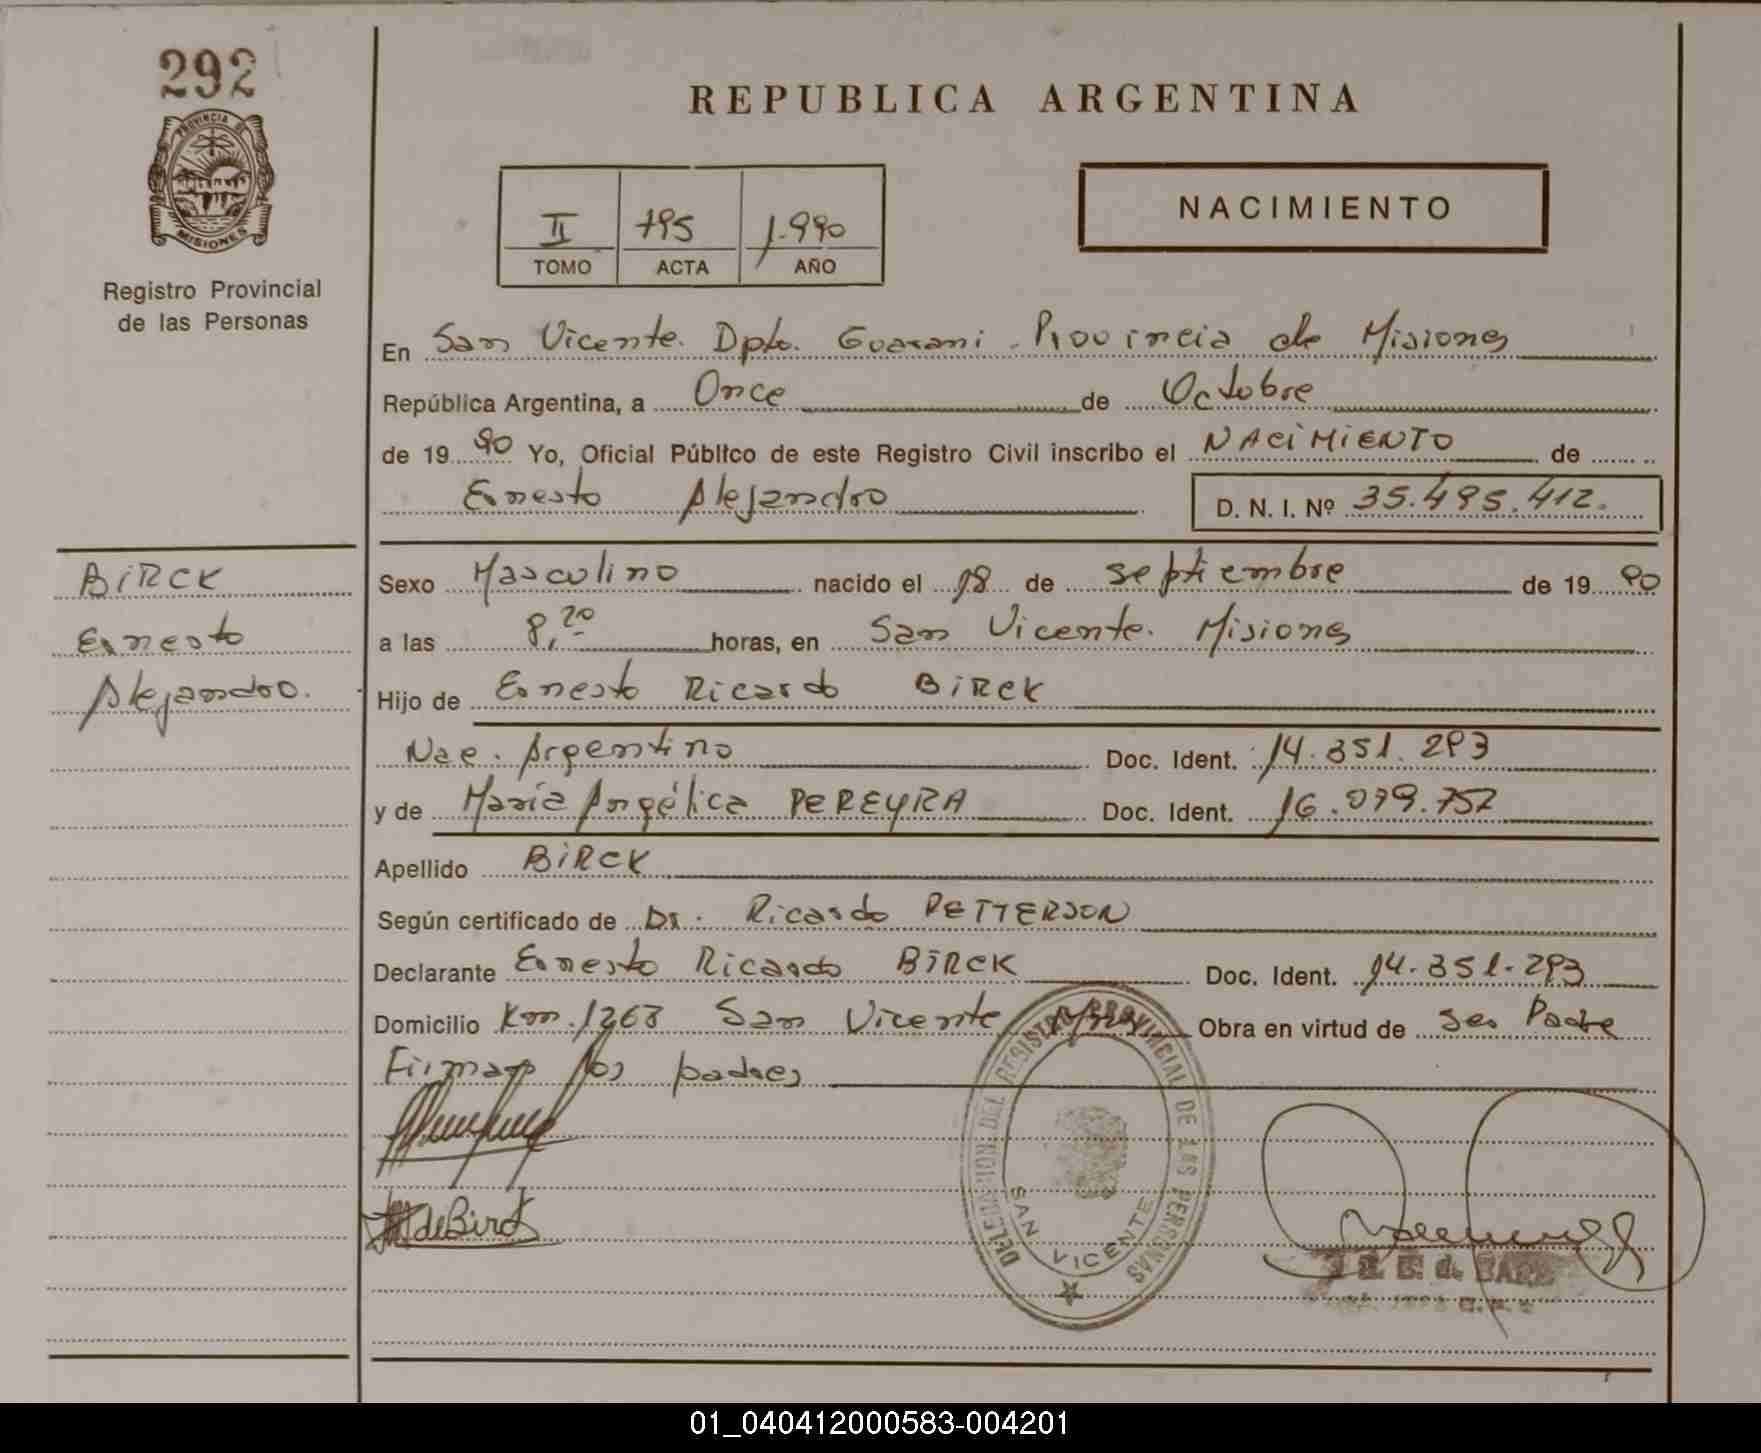 292
PROVINCIA DE
MISIONES
Registro Provincial
de las Personas
REPUBLICA ARGENTINA
II 795 1.990
TOMO ACTA AÑO
NACIMIENTO
En San Vicente. Dpto. Guarani. Provincia de Misiones
República Argentina, a Once de Octubre
de 19 90 Yo, Oficial Público de este Registro Civil inscribo el NACIMIENTO de
Ernesto Alejandro D. N. I. Nº 35.495.412.
BIRCK
Ernesto
Alejandro.
Sexo Masculino nacido el 18 de septiembre de 19 90
a las 8,20 horas, en San Vicente. Misiones
Hijo de Ernesto Ricardo BIRCK
Nac. Argentino Doc. Ident. 14.351.293
y de María Angélica PEREYRA Doc. Ident. 16.079.752
Apellido BIRCK
Según certificado de Dr. Ricardo PETTERSON
Declarante Ernesto Ricardo BIRCK Doc. Ident. 14.351.293
Domicilio Km. 1263 San Vicente Obra en virtud de ser Padre
Firman los padres
de Birck
DELEGACION DEL REGISTRO PROVINCIAL DE LAS PERSONAS
SAN VICENTE
01_040412000583-004201